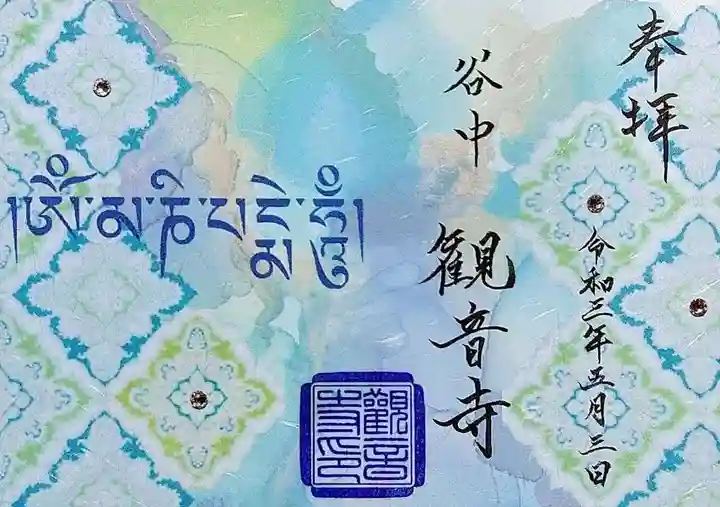 奉拝
令和三年五月三日
谷中 観音寺
།ཨོཾ་མ་ཎི་པདྨེ་ཧཱུྃ།
觀音寺印